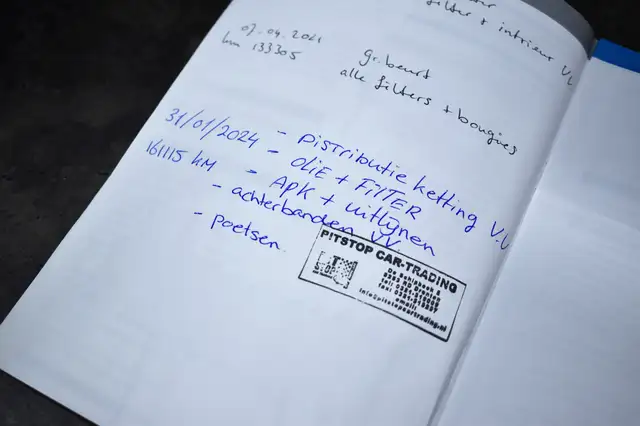 filter + intrieur V.V
07.09.2021
km 133305
gr. beurt
alle filters + bougies
31/01/2024 - DISTRIBUTIE KETTING V.V
161115 KM - OLIE + FILTER
- APK + uitlijnen
- achterbanden V.V.
- poetsen.
PITSTOP CAR-TRADING
email:
info@pitstopcartrading.nl